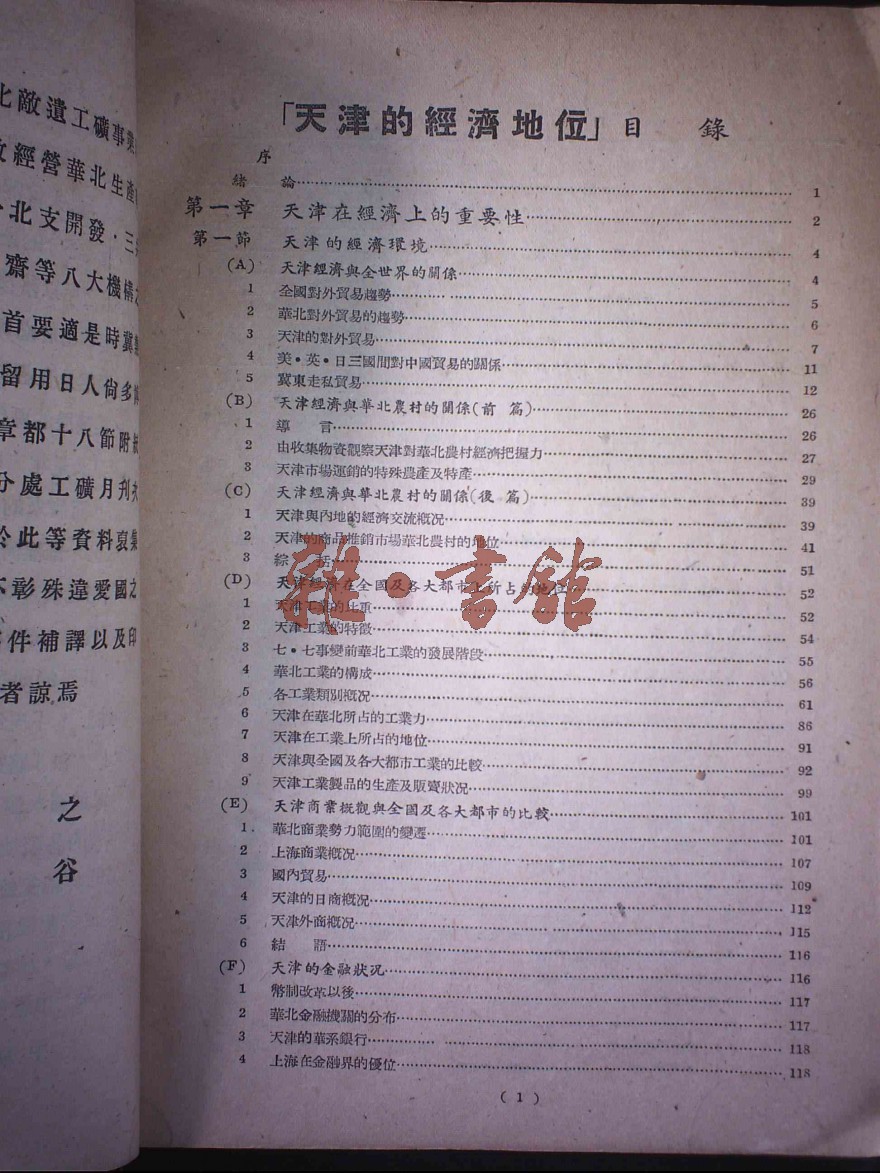 「天津的經濟地位」目 錄
序
緒 論 1
第一章 天津在經濟上的重要性 2
第一節 天津的經濟環境 4
(A) 天津經濟與全世界的關係 4
1 全國對外貿易趨勢 5
2 華北對外貿易的趨勢 6
3 天津的對外貿易 7
4 美•英•日三國間對中國貿易的關係 11
5 冀東走私貿易 12
(B) 天津經濟與華北農村的關係(前 篇) 26
1 導 言 26
2 由收集物資觀察天津對華北農村經濟把握力 27
3 天津市場運銷的特殊農產及特產 29
(C) 天津經濟與華北農村的關係(後 篇) 39
1 天津與內地的經濟交流概况 39
2 天津的商品推銷市場華北農村的地位 41
3 綜 括 51
(D) 天津經濟在全国及各大都市上所占的地位 52
1 天津工業的比重 52
2 天津工業的特徵 54
3 七•七事變前華北工業的發展階段 55
4 華北工業的構成 56
5 各工業類別概况 61
6 天津在華北所占的工業力 86
7 天津在工業上所占的地位 91
8 天津與全國及各大都市工業的比較 92
9 天津工業製品的生產及販賣狀况 99
(E) 天津商業概觀與全国及各大都市的比較 101
1. 華北商業勢力範圍的變遷 101
2 上海商業概况 107
3 國內貿易 109
4 天津的日商概况 112
5 天津外商概况 115
6 結 語 116
(F) 天津的金融狀况 116
1 幣制改革以後 117
2 華北金融機關的分布 117
3 天津的華系銀行 118
4 上海在金融界的優位 118
( 1 )
北敵遺工礦事業
經營華北生產
北支開發・三
齋等八大機構
首要適是時冀
留用日人尙多
章都十八節附
分處工礦月刊
於此等資料裒集
不彰殊違愛國之
件補譯以及印
者諒焉
之
谷
雜•書館